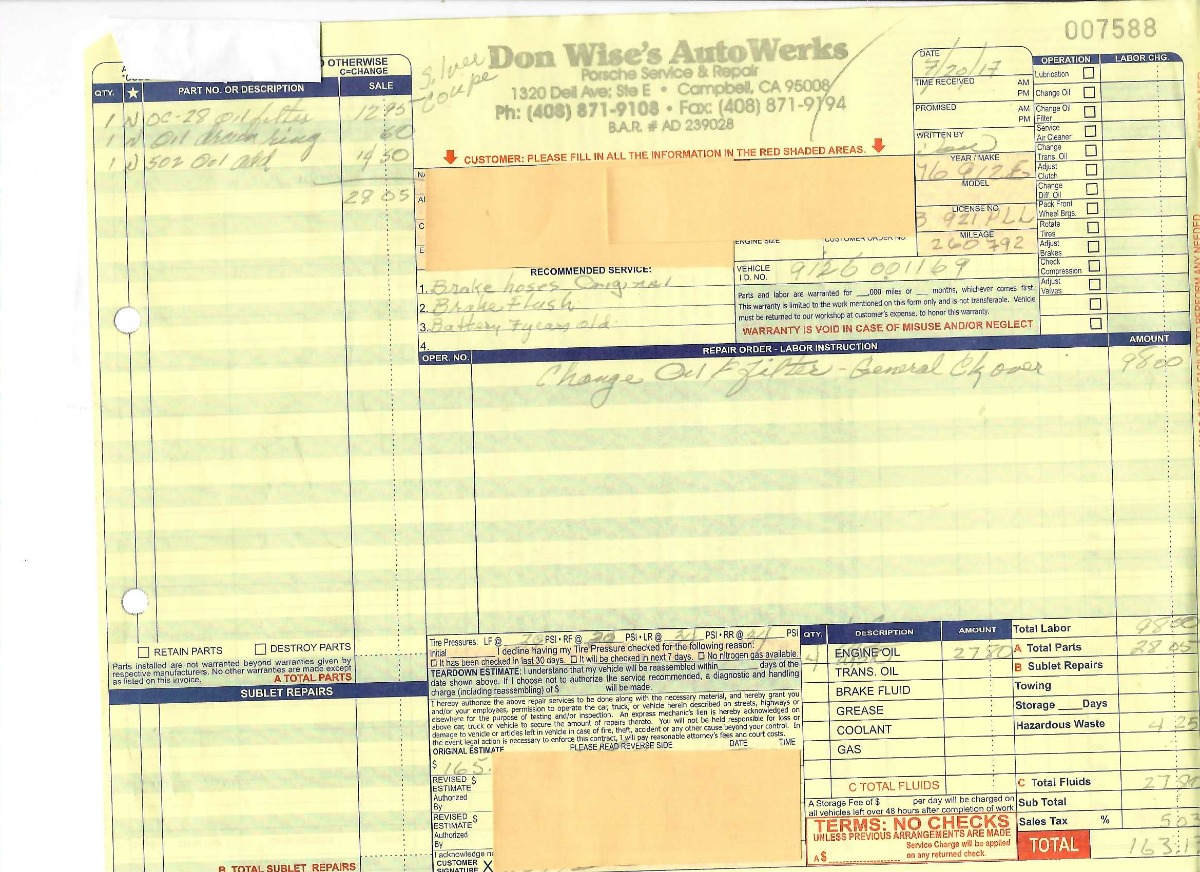 007588
Don Wise's AutoWerks
Porsche Service & Repair
1320 Dell Ave; Ste E • Campbell, CA 95008
Ph: (408) 871-9108 • Fax: (408) 871-9194
B.A.R. # AD 239028
Silver
Coupe
CUSTOMER: PLEASE FILL IN ALL THE INFORMATION IN THE RED SHADED AREAS.
OTHERWISE
C=CHANGE
QTY. ★ PART NO. OR DESCRIPTION SALE
1 N OC-28 Oil filter 12 95
1 N Oil drain ring 60
1 N 502 Oil add 14 50
28 05
DATE 7/20/17
TIME RECEIVED AM PM
PROMISED AM PM
WRITTEN BY
YEAR / MAKE
76 912E
MODEL
LICENSE NO.
921 PLL
MILEAGE
260792
ENGINE SIZE CUSTOMER ORDER NO.
VEHICLE I.D. NO. 9126001169
OPERATION LABOR CHG.
Lubrication
Change Oil
Change Oil Filter
Service Air Cleaner
Change Trans. Oil
Adjust Clutch
Change Diff. Oil
Pack Front Wheel Brgs.
Rotate Tires
Adjust Brakes
Check Compression
Adjust Valves
RECOMMENDED SERVICE:
1. Brake hoses Original
2. Brake Flush
3. Battery 7 years old
4.
Parts and labor are warranted for __,000 miles or __ months, whichever comes first.
This warranty is limited to the work mentioned on this form only and is not transferable. Vehicle
must be returned to our workshop at customer's expense, to honor this warranty.
WARRANTY IS VOID IN CASE OF MISUSE AND/OR NEGLECT
OPER. NO. REPAIR ORDER - LABOR INSTRUCTION AMOUNT
Change Oil & Filter - General Ck over 98 00
RETAIN PARTS DESTROY PARTS
Parts installed are not warranted beyond warranties given by
respective manufacturers. No other warranties are made except
as listed on this invoice.
A TOTAL PARTS
SUBLET REPAIRS
B TOTAL SUBLET REPAIRS
Tire Pressures: LF @ PSI • RF @ PSI • LR @ PSI • RR @ PSI
Initial I decline having my Tire Pressure checked for the following reason:
It has been checked in last 30 days. It will be checked in next 7 days. No nitrogen gas available.
TEARDOWN ESTIMATE: I understand that my vehicle will be reassembled within ______ days of the
date shown above. If I choose not to authorize the service recommended, a diagnostic and handling
charge (including reassembling) of $ ______ will be made.
I hereby authorize the above repair services to be done along with the necessary material, and hereby grant you
and/or your employees, permission to operate the car, truck, or vehicle herein described on streets, highways or
elsewhere for the purpose of testing and/or inspection. An express mechanic's lien is hereby acknowledged on
above car, truck or vehicle to secure the amount of repairs thereto. You will not be held responsible for loss or
damage to vehicle or articles left in vehicle in case of fire, theft, accident or any other cause beyond your control. In
the event legal action is necessary to enforce this contract, I will pay reasonable attorney's fees and court costs.
ORIGINAL ESTIMATE PLEASE READ REVERSE SIDE DATE TIME
$ 165.
REVISED ESTIMATE $
Authorized By
REVISED ESTIMATE $
Authorized By
CUSTOMER SIGNATURE X
QTY. DESCRIPTION AMOUNT
4 ENGINE OIL 27 80
TRANS. OIL
BRAKE FLUID
GREASE
COOLANT
GAS
C TOTAL FLUIDS
A Storage Fee of $ per day will be charged on
all vehicles left over 48 hours after completion of work
TERMS: NO CHECKS
UNLESS PREVIOUS ARRANGEMENTS ARE MADE
A $ ______ Service Charge will be applied
on any returned check.
Total Labor 98 00
A Total Parts 28 05
B Sublet Repairs
Towing
Storage ____ Days
Hazardous Waste 4 25
C Total Fluids 27 80
Sub Total
Sales Tax % 5 03
TOTAL 163.1